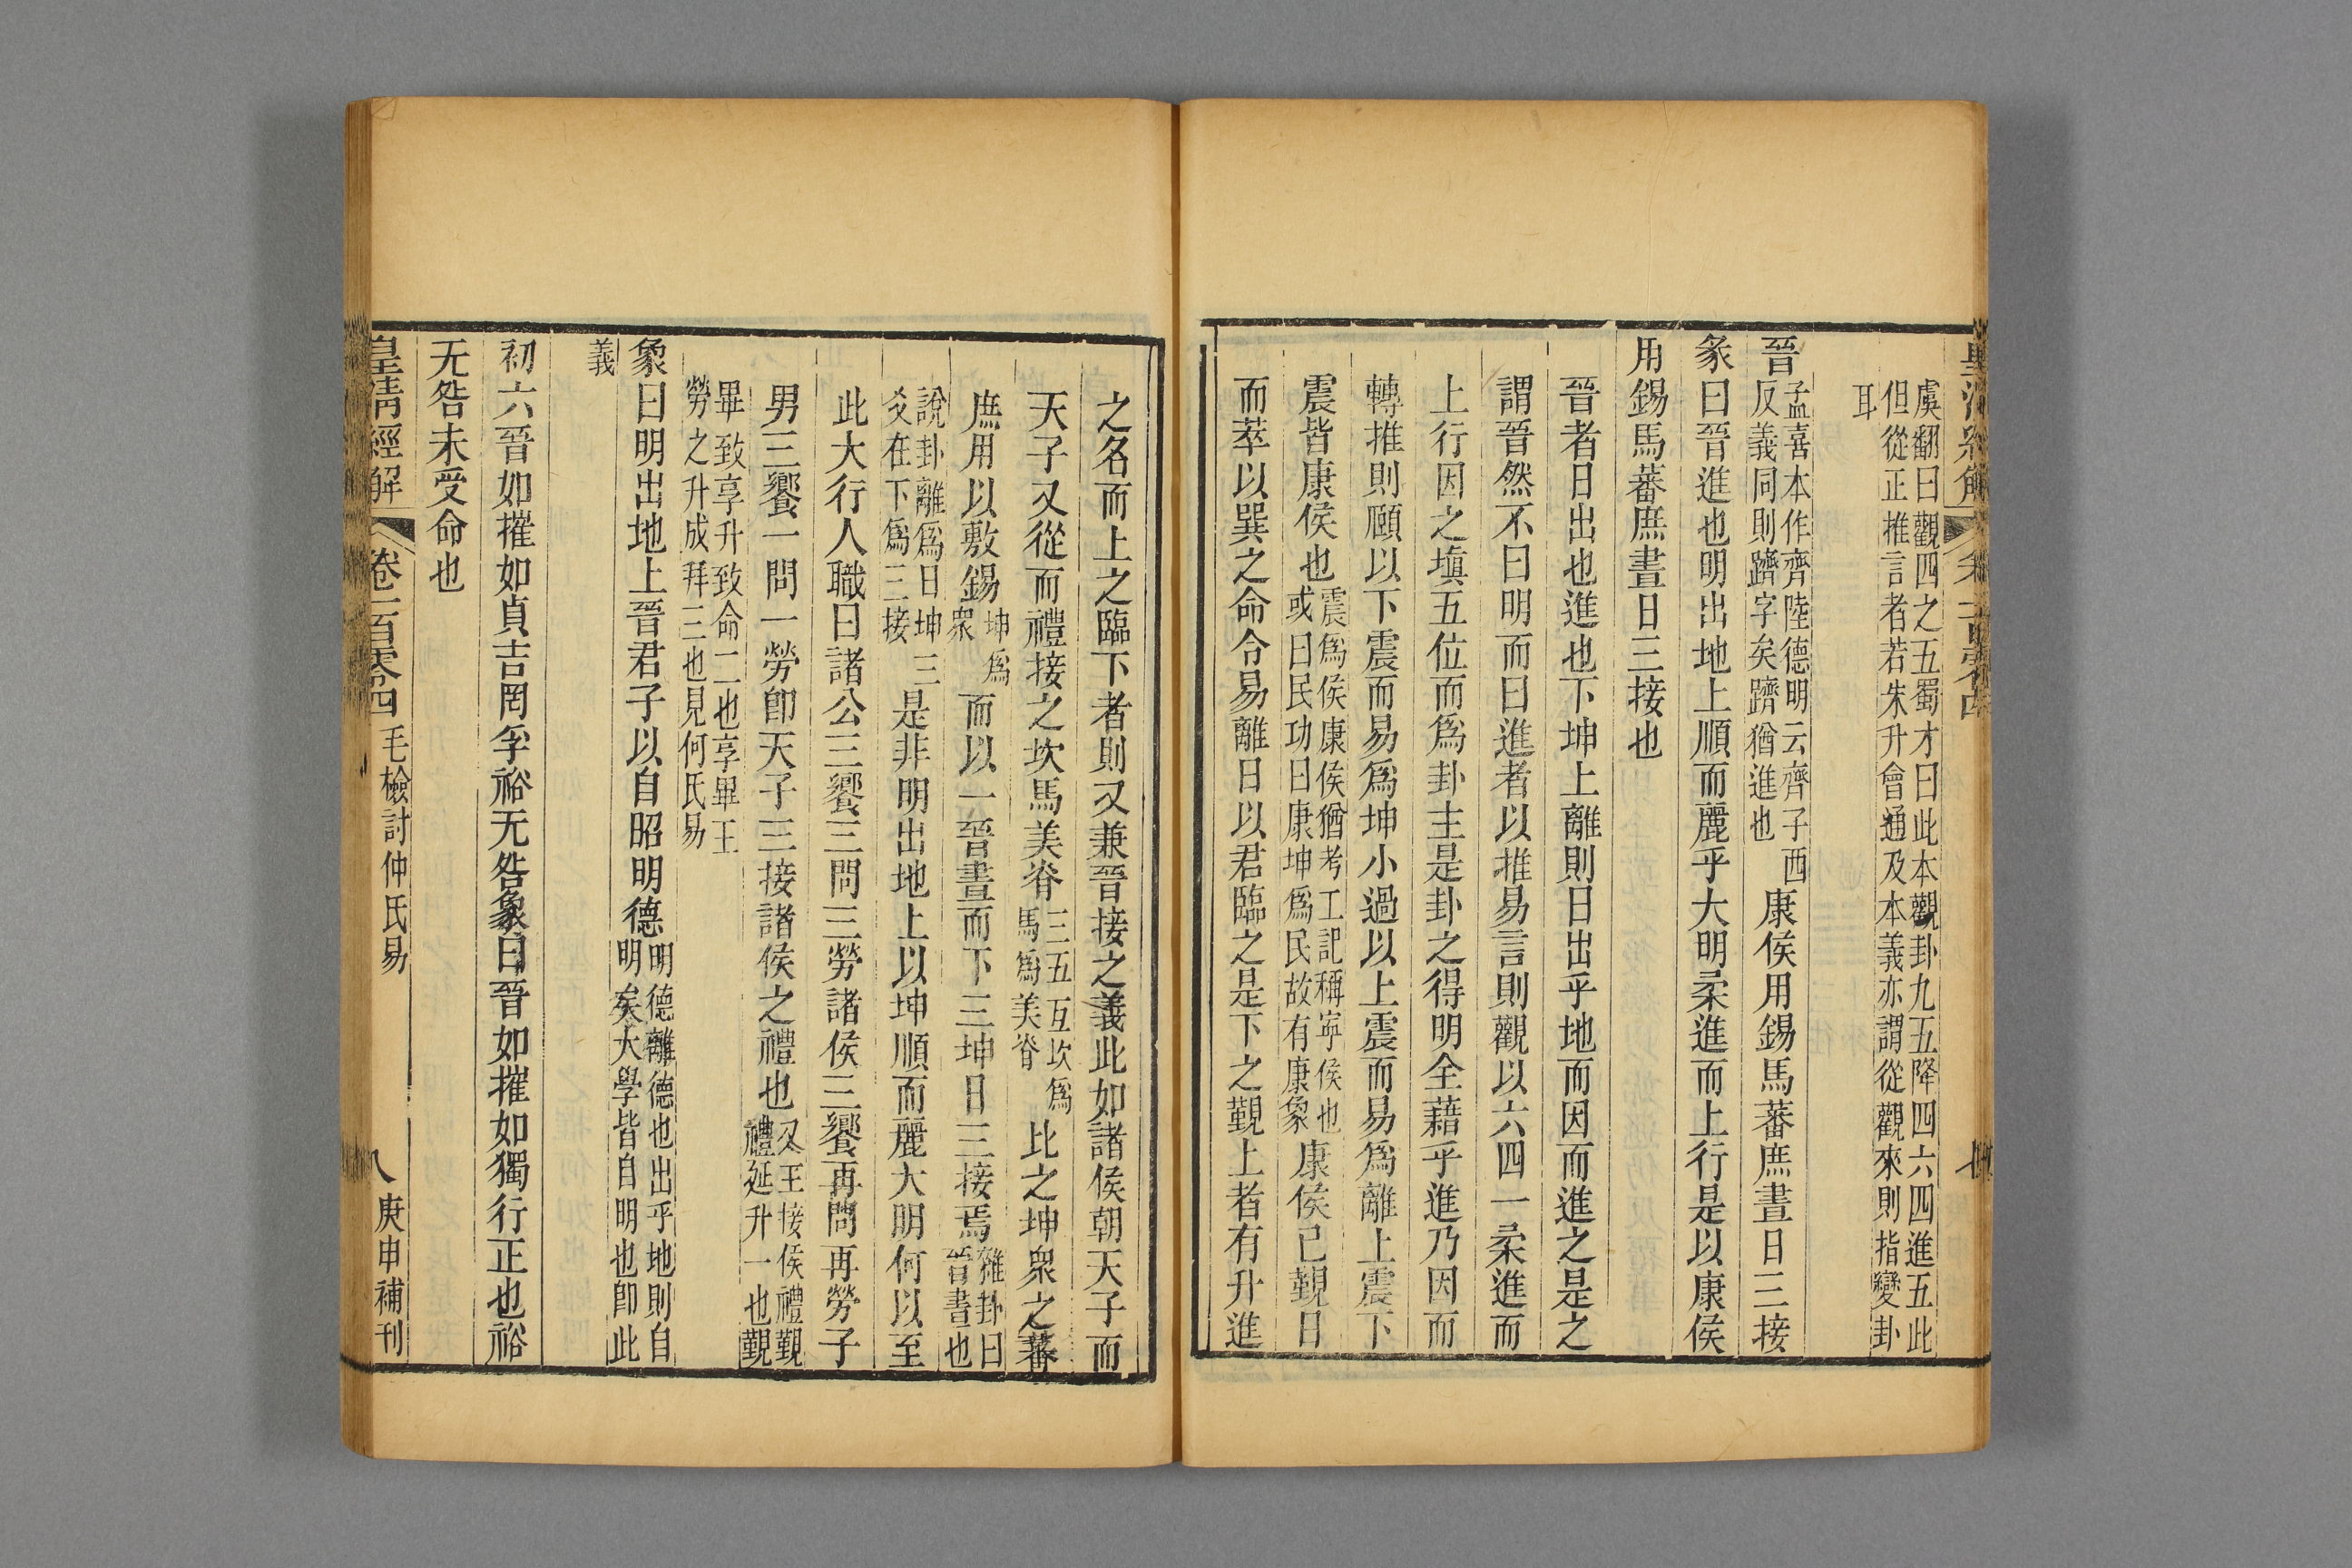 虞翻曰觀四之五蜀才曰此本觀卦九五降四六四進五此
但從正推言者若朱升會通及本義亦謂從觀來則指變卦
耳
晉孟喜本作齊陸德明云齊子西
反義同則躋字矣躋猶進也康侯用錫馬蕃庶晝日三接
彖曰晉進也明出地上順而麗乎大明柔進而上行是以康侯
用錫馬蕃庶晝日三接也
晉者日出也進也下坤上離則日出乎地而因而進之是之
謂晉然不曰明而曰進者以推易言則觀以六四一柔進而
上行因之塡五位而爲卦主是卦之得明全藉乎進乃因而
轉推則頤以下震而易爲坤小過以上震而易爲離上震下
震皆康侯也震爲侯康侯猶考工記稱寧侯也
或曰民功曰康坤爲民故有康象康侯已覲日
而萃以巽之命令易離日以君臨之是下之覲上者有升進
之名而上之臨下者則又兼晉接之義此如諸侯朝天子而
天子又從而禮接之坎馬美脊三五互坎爲
馬爲美脊比之坤衆之蕃
庶用以敷錫坤爲
衆而以一晉晝而下三坤日三接焉雜卦曰
晉晝也
說卦離爲日坤三
爻在下爲三接是非明出地上以坤順而麗大明何以至
此大行人職曰諸公三饗三問三勞諸侯三饗再問再勞子
男三饗一問一勞卽天子三接諸侯之禮也又王接侯禮覲
禮延升一也覲
畢致享升致命二也享畢王
勞之升成拜三也見何氏易
象曰明出地上晉君子以自昭明德明德離德也出乎地則自
明矣大學皆自明也卽此
義
初六晉如摧如貞吉罔孚裕无咎象曰晉如摧如獨行正也裕
无咎未受命也
皇清經解 卷一百零四 毛檢討仲氏易 八 庚申補刊